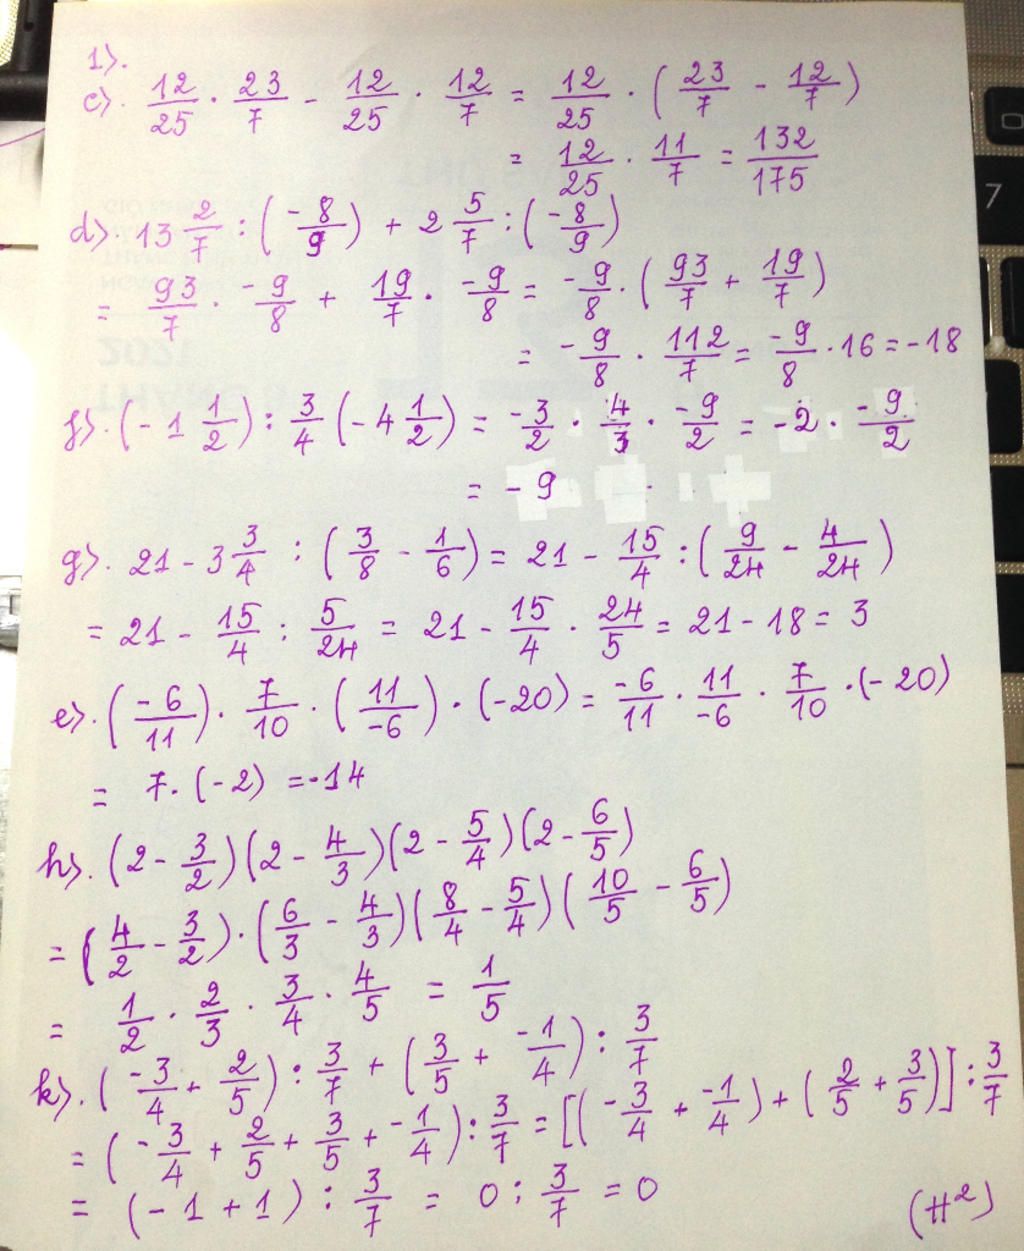 1).
c). 12/25 . 23/7 - 12/25 . 12/7 = 12/25 . (23/7 - 12/7)
= 12/25 . 11/7 = 132/175
d) 13 2/7 : (-8/9) + 2 5/7 : (-8/9)
= 93/7 . -9/8 + 19/7 . -9/8 = -9/8 . (93/7 + 19/7)
= -9/8 . 112/7 = -9/8 . 16 = -18
f). (-1 1/2) : 3/4 (-4 1/2) = -3/2 . 4/3 . -9/2 = -2 . -9/2
= -9
g). 21 - 3 3/4 : (3/8 - 1/6) = 21 - 15/4 : (9/24 - 4/24)
= 21 - 15/4 : 5/24 = 21 - 15/4 . 24/5 = 21 - 18 = 3
e). (-6/11) . 7/10 . (11/-6) . (-20) = -6/11 . 11/-6 . 7/10 . (-20)
= 7. (-2) = -14
h). (2 - 3/2)(2 - 4/3)(2 - 5/4)(2 - 6/5)
= (4/2 - 3/2) . (6/3 - 4/3)(8/4 - 5/4)(10/5 - 6/5)
= 1/2 . 2/3 . 3/4 . 4/5 = 1/5
k). (-3/4 + 2/5) : 3/7 + (3/5 + -1/4) : 3/7
= (-3/4 + 2/5 + 3/5 + -1/4) : 3/7 = [(-3/4 + -1/4) + (2/5 + 3/5)] : 3/7
= (-1 + 1) : 3/7 = 0 : 3/7 = 0
(H²)
7